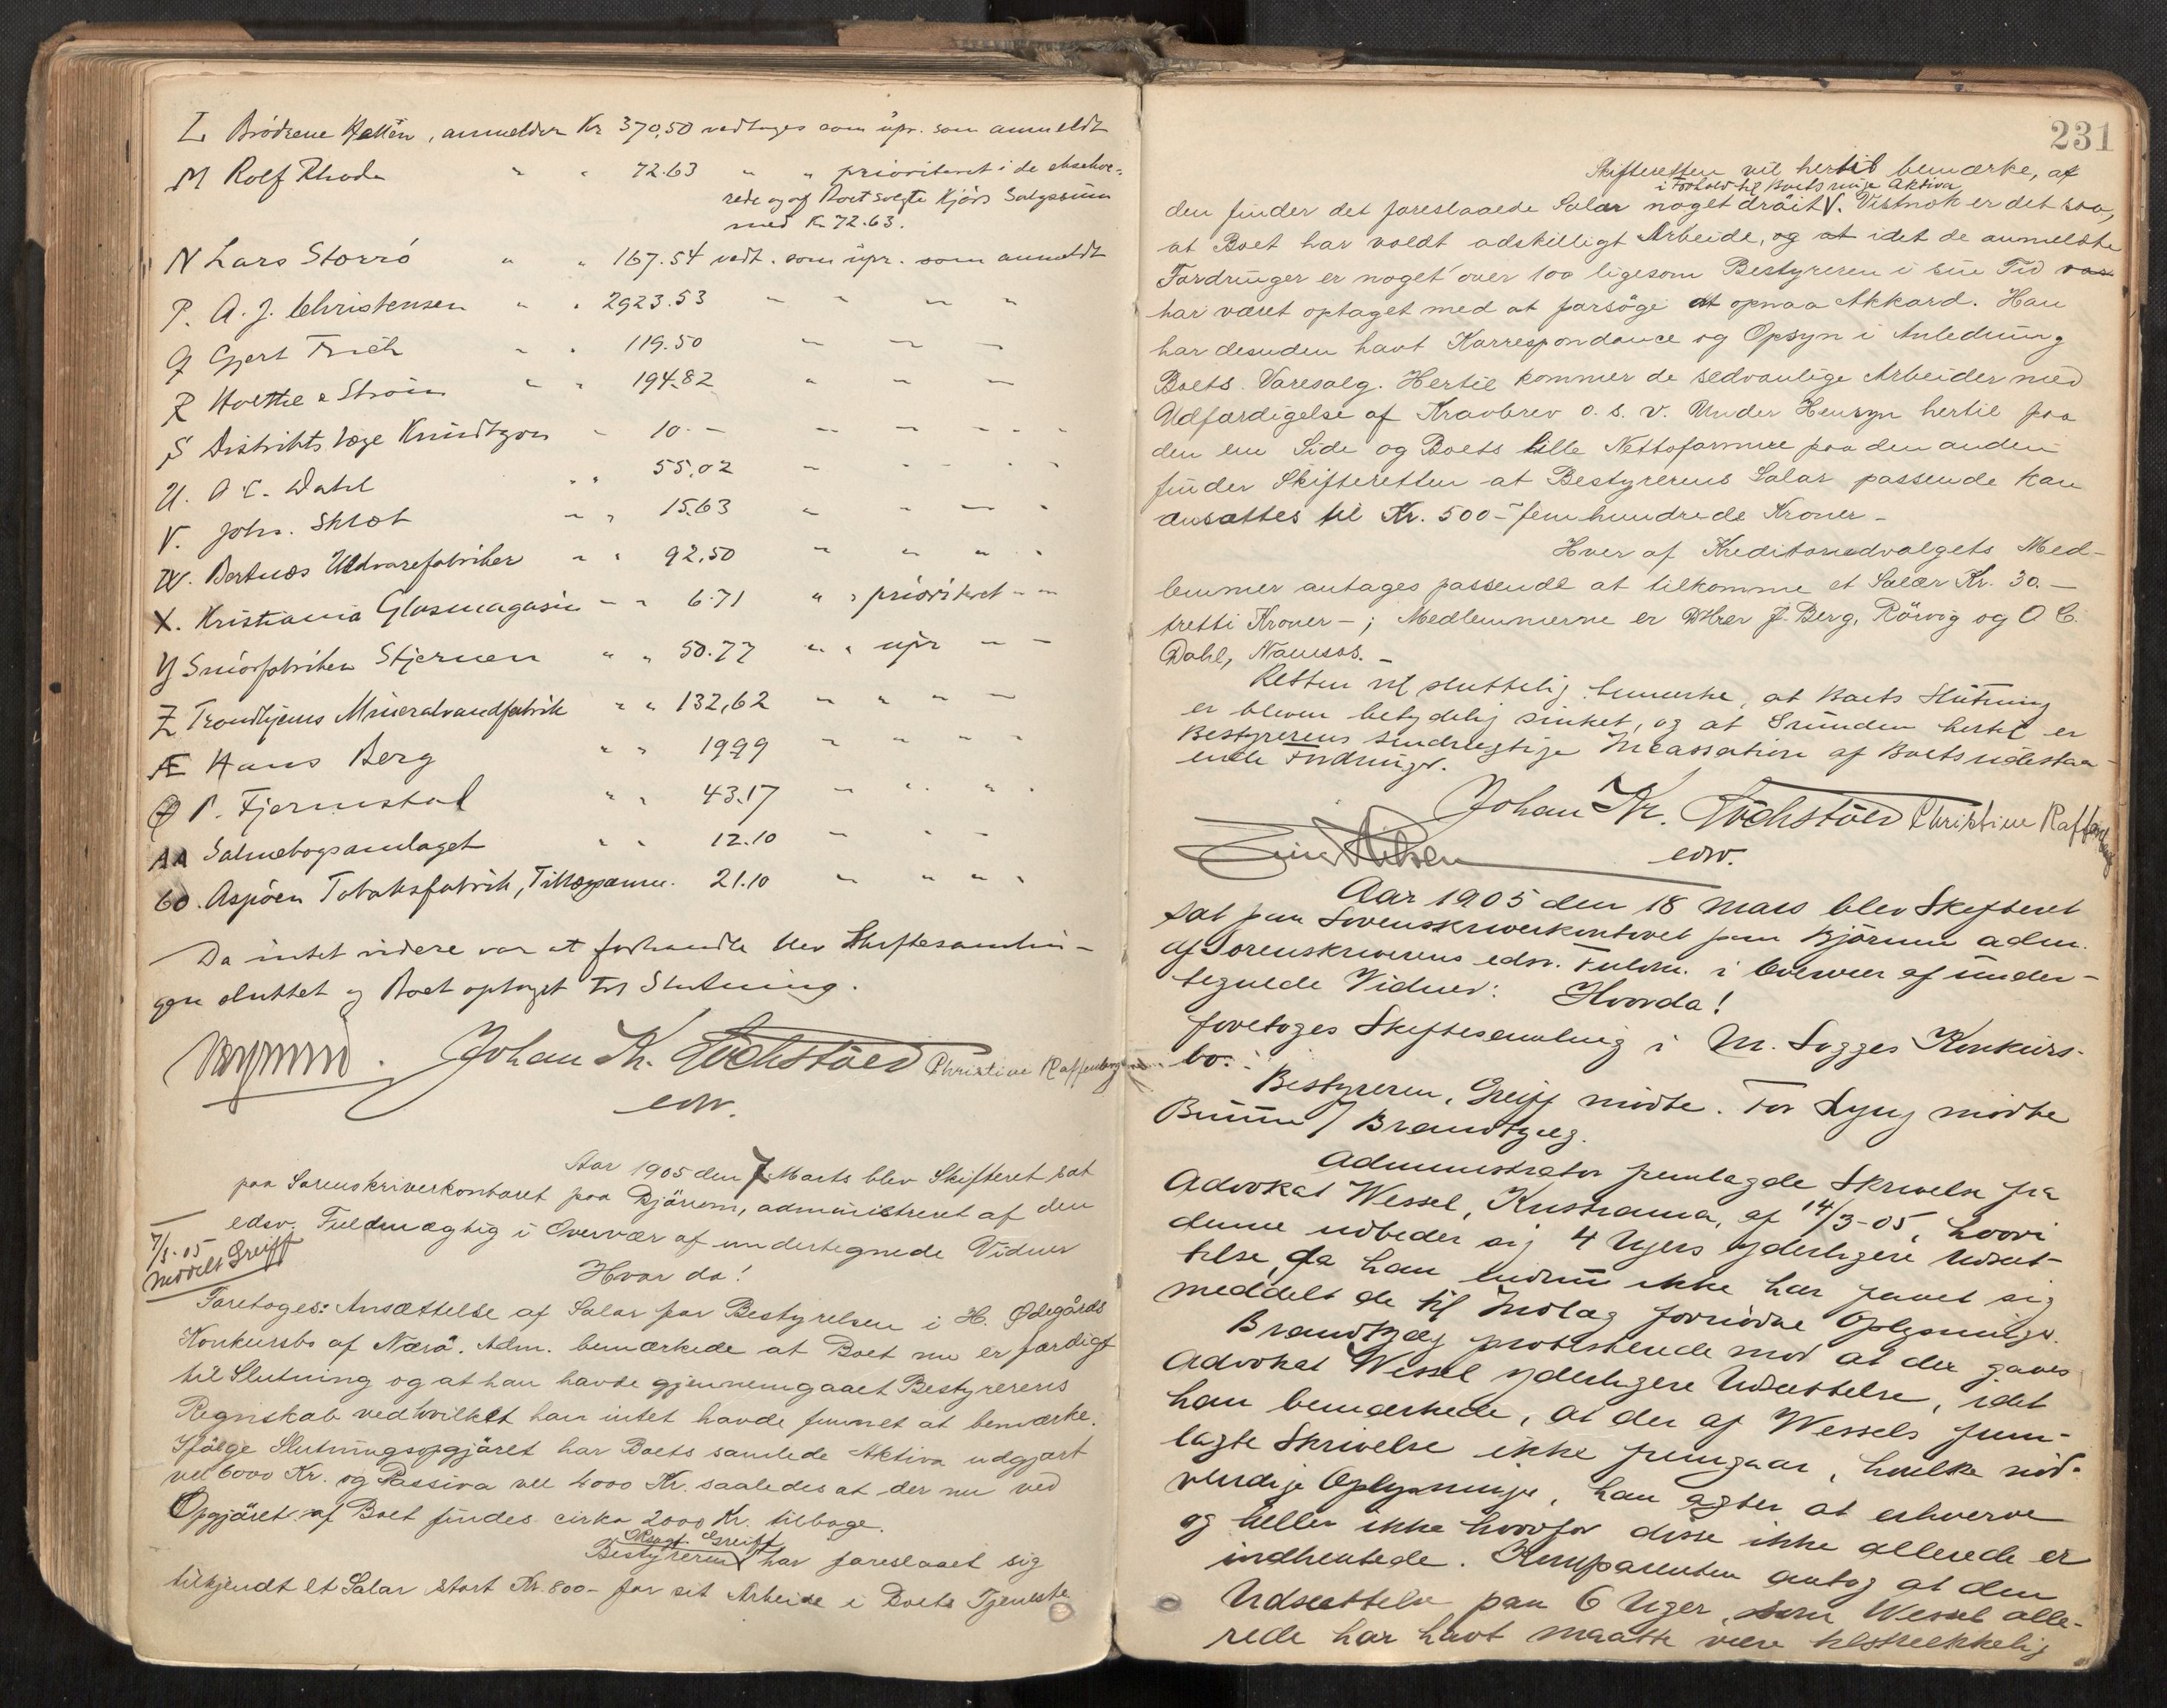 L Brödrene Hallén, anmelder Kr 370,50 vedtages som upr. som anmeldt
M Rolf Rhode " " 72.63 " " prioriteret i de ekseke-
rede og af Boet solgte Kjörs Salgssum
med Kr. 72.63.
N Lars Storrö " " 167.54 vedt. som upr. som anmeldt
P. A. J. Christensen " " 2923.53 " " " "
Q Gjert Friih " " 119.50 " " "
R Holthe & Ström " " 194.82 " " "
S Distriktslæge Knudtzon " 10.- " " " " "
U. O C. Dahl " " 55,02 " " " "
V. Johs. Sklet " " 15.63 " " " "
W. Bertnæs Uldvarefabriker " " 92,50 " " " "
X. Kristiania Glasmagasin " " 6.71 " " prioriteret " "
Y Smörfabriken Stjernen " " 50.77 " " upr " "
Z Trondhjems Mineralvandfabrik " " 132,62 " " " "
Æ Hans Berg " " 1999 " " " "
Ø P. Fjermstad " " 43.17 " " " "
AA Salmebogsamlaget " " 12.10 " " "
60. Aspöen Tobaksfabrik, Tillægsanm. 21.10 " " " "
Da intet videre var at forhandle blev Skiftesamlin-
gen sluttet og Boet optaget til Slutning.
Johan Kr. Löchstöer Christine Raffenborg
edv.
Aar 1905 den 7 Marts blev Skifteret sat
paa Sorenskriverkontoret paa Björum, administreret af den
edsv. Fuldmægtig i Overvær af undertegnede Vidner
7/3-05
meddelt Greiff
Hvor da!
Foretoges: Ansættelse af Salær for Bestyrelsen i H. Ødegårds
Konkursbo af Nærö. Adm. bemærkede at Boet nu er færdigt
til Slutning og at han havde gjennemgaaet Bestyrerens
Regnskab ved hvilket han intet havde funnet at bemærke.
Ifølge Slutningsopgjöret har Boets samlede Aktiva udgjort
vel 6000 Kr. og Passiva vel 4000 Kr. saaledes at der nu ved
Opgjöret af Boet findes cirka 2000 Kr. tilbage.
Oksagf. Greiff
Bestyreren V har foreslaaet sig
tilkjendt et Salær stort Kr. 800- for sit Arbeide i Boets Tjeneste
231
Skifteretten vil hertil bemærke, at
i Forhold til Boets ringe Aktiva
den finder det foreslaaede Salær noget dröit V. Vistnok er det saa,
at Boet har voldt adskilligt Arbeide, og at idet de anmeldte
Fordringer er noget over 100 ligesom Bestyreren i sin Tid var
har været optaget med at forsöge at opnaa Akkord. Han
har desuden havt Korrespondance og Opsyn i Anledning
Boets Varesalg. Hertil kommer de sedvanlige Arbeider med
Udfærdigelse af Kravbrev o.s.v. Under Hensyn hertil paa
den ene Side og Boets lille Nettoformue paa den anden
finder Skifteretten at Bestyrerens Salær passende kan
ansættes til Kr. 500- femhundrede Kroner-
Hver af Kreditorudvalgets Med-
lemmer antages passende at tilkomme et Salær Kr. 30.-
tretti Kroner -; Medlemmerne er DHrer J. Berg, Rörvig og O C.
Dahl, Namsos.-
Retten vil sluttelig bemerke, at Boets Slutning
er bleven betydelig sinket, og at Grunden hertil er
Bestyrerens sendrægtige Incassation af Boets udestaa-
ende Fordringer.
Johan Kr. Löchstöer Christine Raffenborg
edv.
Aar 1905 den 18 mars blev Skifteret
sat paa Sorenskriverkontoret paa Björum adm.
af Sorenskriverens edsv. Fuldm. i Overvær af under-
tegnede Vidner: Hvorda!
foretoges Skiftesamling i M. Sagges Konkurs-
bo:
Bestyreren, Greiff mödte. For Lyng mödte
Brandtzæg.
Administrator fremlagde Skrivelse fra
Advokat Wessel, Kristiania, af 14/3-05, hvori
denne udbeder sig 4 Ugers yderligere Udsæt-
telse, da han endnu ikke har faaet sig
meddelt de til Indlæg fornödne Oplysninger.
Brandtzæg protesterede mod at der gaves
Advokat Wessel yderligere Udsættelse, idet
han bemærkede, at der af Wessels frem-
lagte Skrivelse ikke fremgaar, hvilke nöd-
vendige Oplysninger, han agter at erhverve
og heller ikke hvorfor disse ikke allerede er
indhentede. Komparenten antog at den
Udsættelse paa 6 Uger, som Wessel alle-
rede har havt maatte være tilstrækkelig